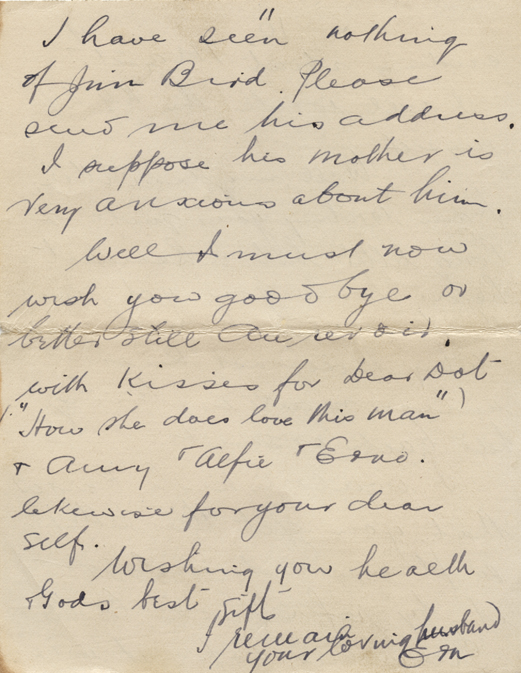 11
I have seen nothing
of Jim Bird. Please
send me his address.
I suppose his mother is
very anxious about him.
Well I must now
wish you good bye or
better still Au revoir.
with Kisses for Dear Dot
("How she does love this man")
+ Amy + Alfie +
likewise for your dear
self.
Wishing you health
+ Gods best gifts
I remain
your loving husband